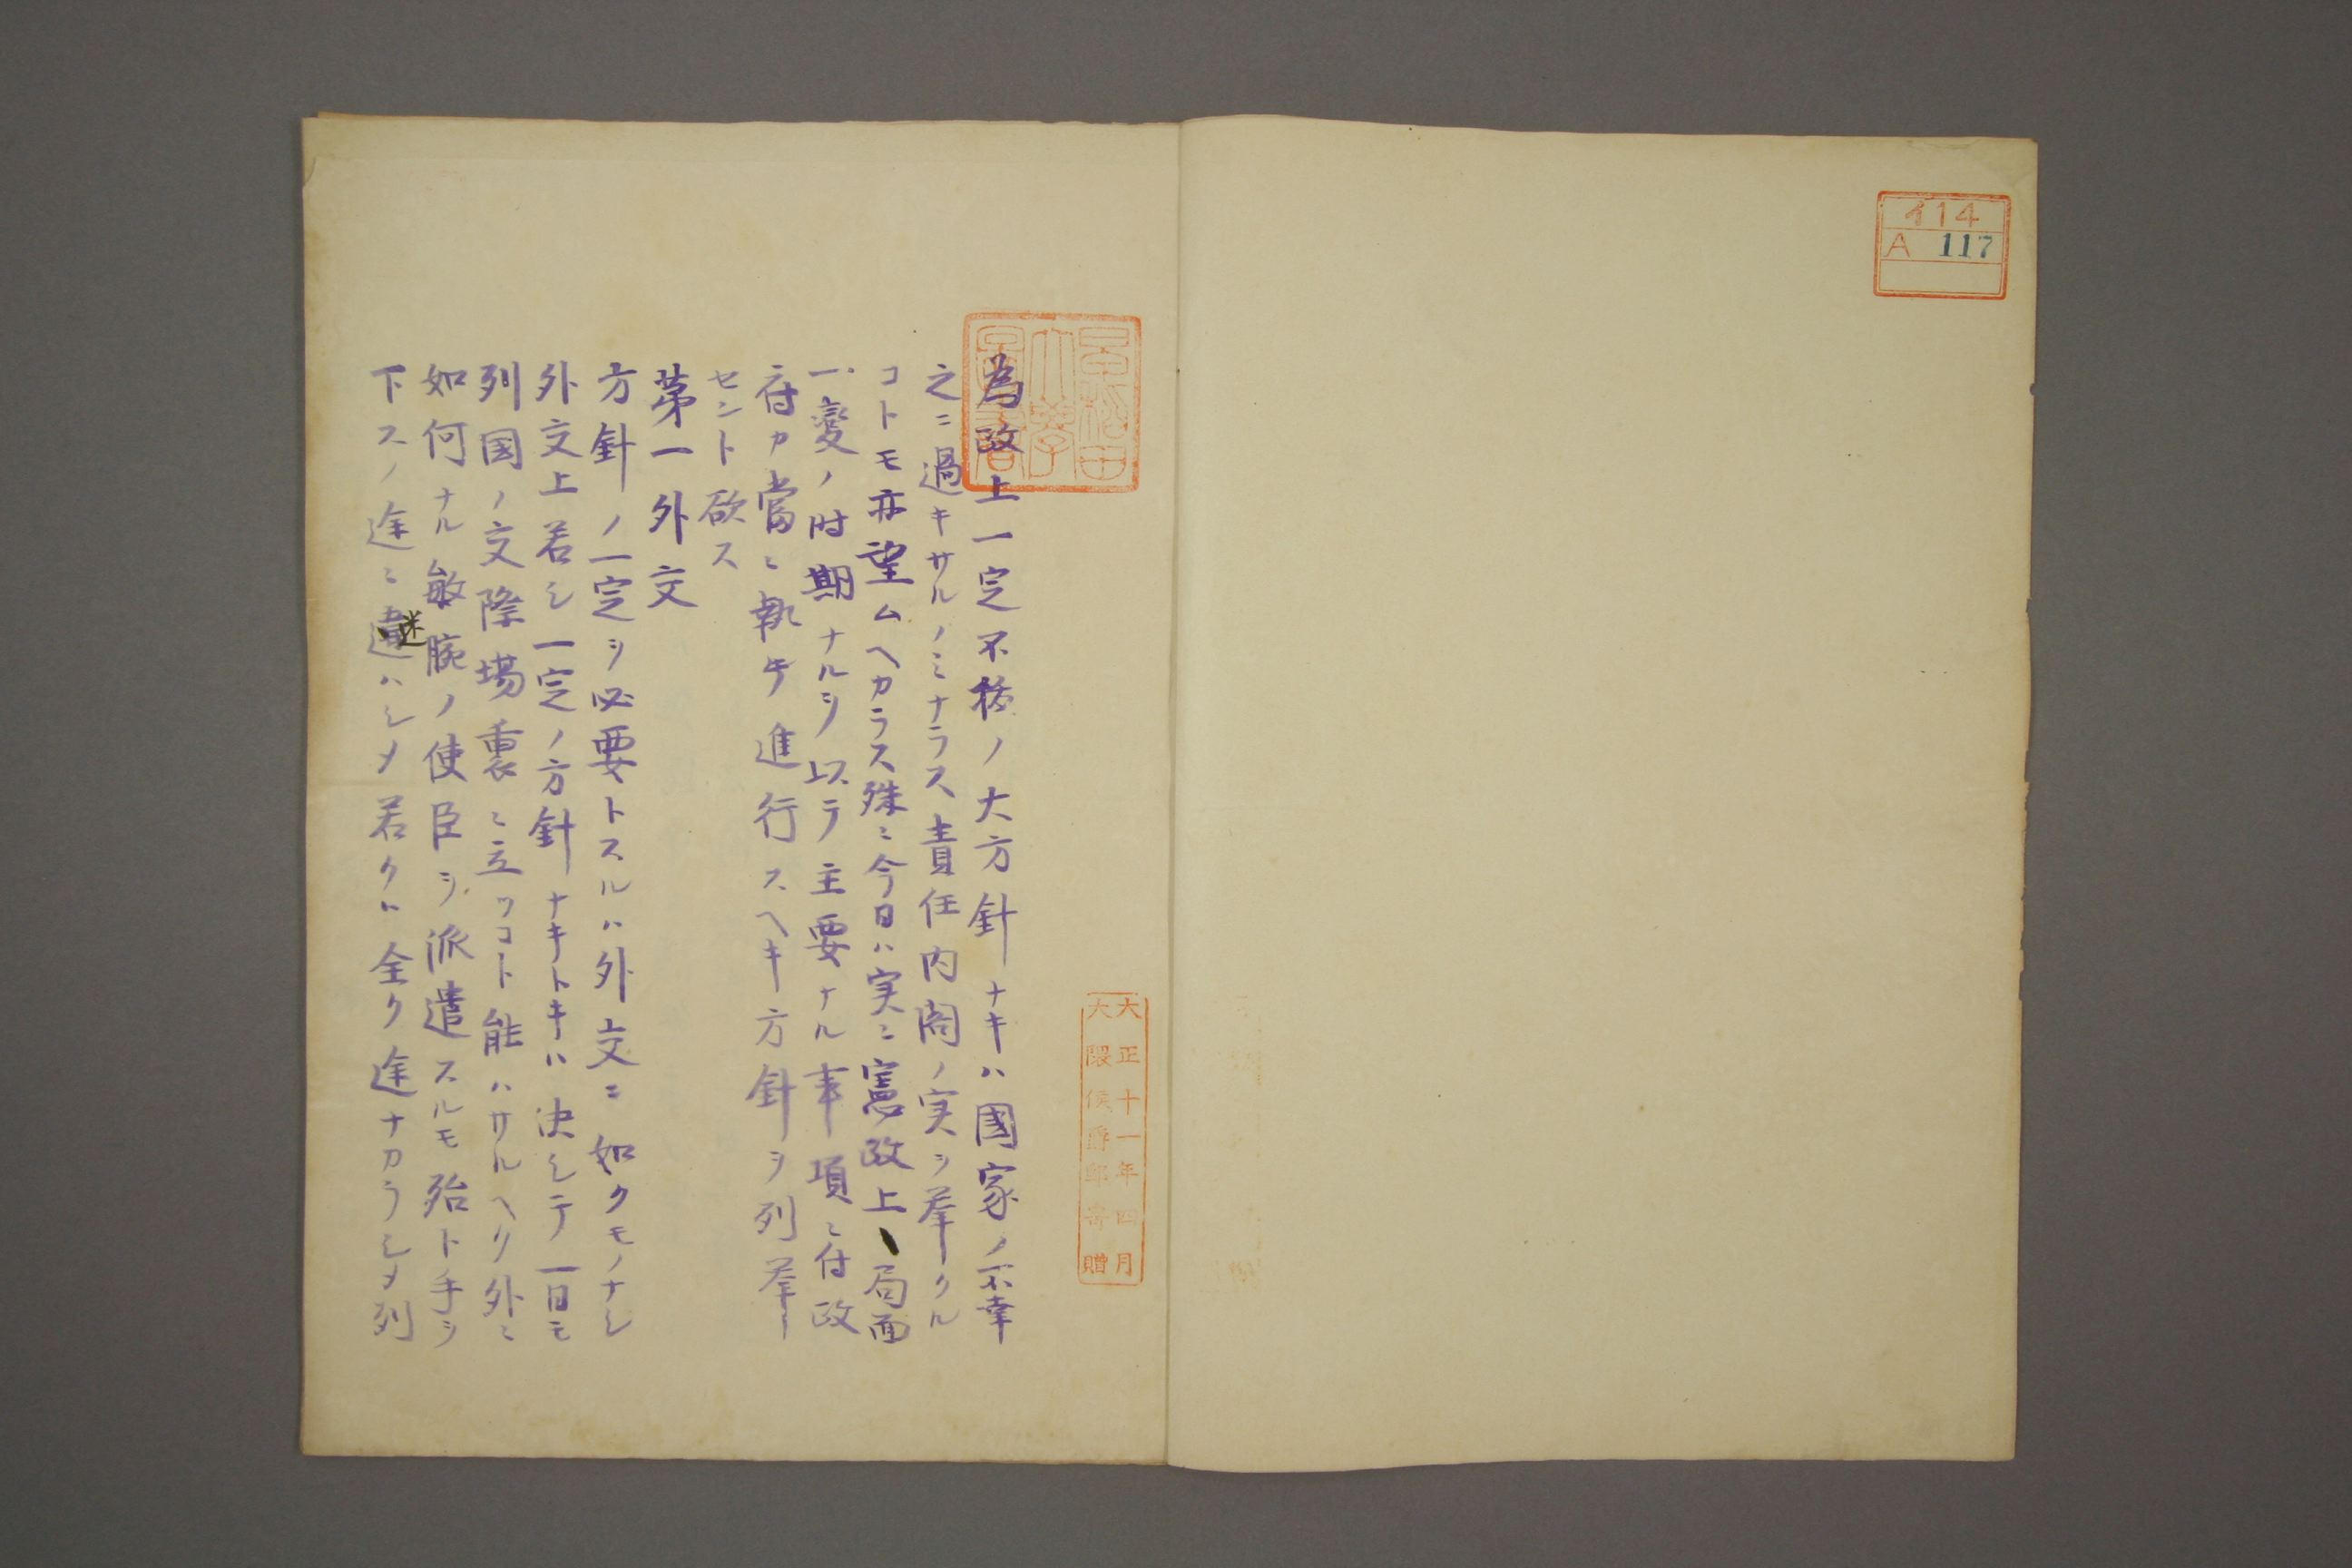 イ14
A 117
早稲田
大学
図書
大正十一年四月
大隈侯爵邸寄贈
為政上一定不移ノ大方針ナキハ國家ノ不幸
之ニ過キサルノミナラス責任内閣ノ実ヲ挙クル
コトモ亦望ムヘカラス殊ニ今日ハ実ニ憲政上、局面
一變ノ時期ナルヲ以テ主要ナル事項ニ付政
府カ當ニ執テ進行スヘキ方針ヲ列挙
セント欲ス
第一 外交
方針ノ一定ヲ必要トスルハ外交ニ如クモノナシ
外交上若シ一定ノ方針ナキトキハ決シテ一日モ
列国ノ交際場裏ニ立ツコト能ハサルヘク外ニ
如何ナル敏腕ノ使臣ヲ派遣スルモ殆ト手ヲ
下スノ途ニ迷ハシメ若クハ全ク途ナカラシメ列